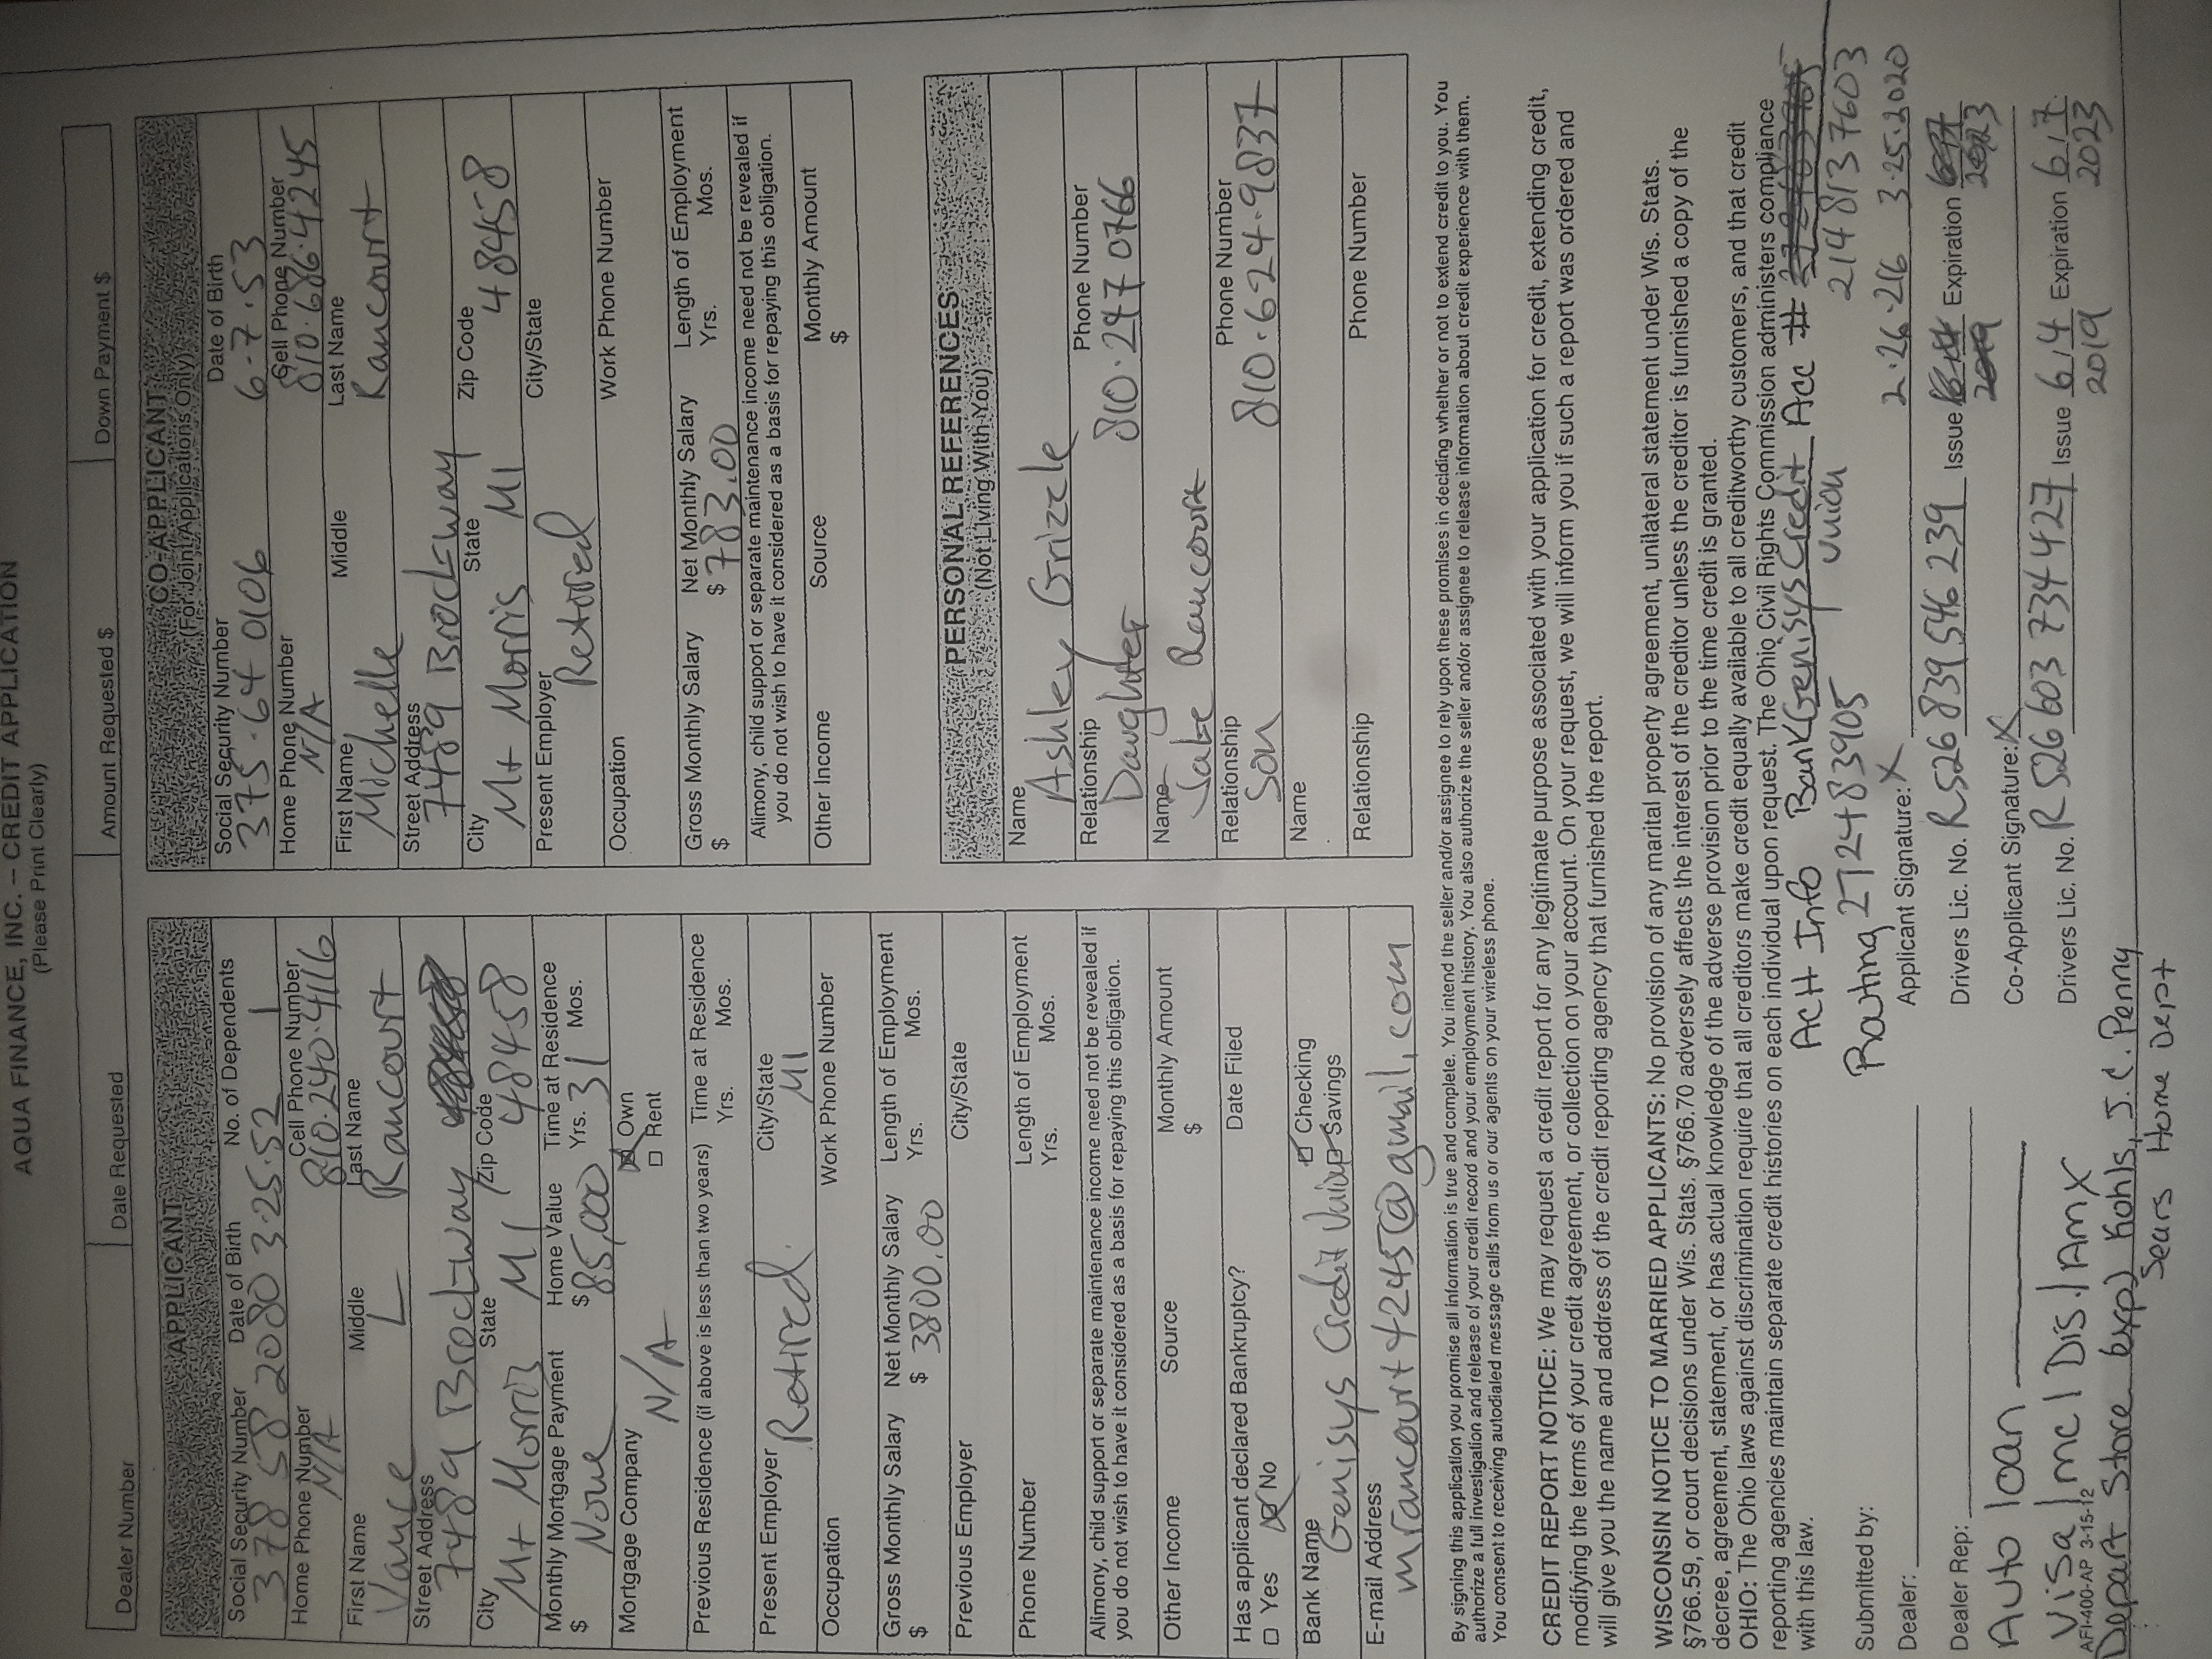 AQUA FINANCE, INC. – CREDIT APPLICATION
(Please Print Clearly)
Dealer Number Date Requested Amount Requested $ Down Payment $
APPLICANT
Social Security Number Date of Birth No. of Dependents
378 58 2080 3-25-52 1
Home Phone Number Cell Phone Number
N/A 810-240-4116
First Name Middle Last Name
Vance L Rancourt
Street Address
7489 Brockway
City State Zip Code
Mt Morris MI 48458
Monthly Mortgage Payment Home Value Time at Residence
$ None $ 85,000 Yrs. 31 Mos.
Mortgage Company Own
N/A Rent
Previous Residence (if above is less than two years) Time at Residence
Yrs. Mos.
Present Employer City/State
Retired MI
Occupation Work Phone Number
Gross Monthly Salary Net Monthly Salary Length of Employment
$ $ 3800.00 Yrs. Mos.
Previous Employer City/State
Phone Number Length of Employment
Yrs. Mos.
Alimony, child support or separate maintenance income need not be revealed if
you do not wish to have it considered as a basis for repaying this obligation.
Other Income Source Monthly Amount
$
Has applicant declared Bankruptcy? Date Filed
Yes No
Bank Name Checking
Genisys Credit Union Savings
E-mail Address
mrancourt4245@gmail.com
CO-APPLICANT
(For Joint Applications Only)
Social Security Number Date of Birth
375-64 0106 6-7-53
Home Phone Number Cell Phone Number
N/A 810-686-4245
First Name Middle Last Name
Michelle Rancourt
Street Address
7489 Brockway
City State Zip Code
Mt Morris MI 48458
Present Employer City/State
Retired
Occupation Work Phone Number
Gross Monthly Salary Net Monthly Salary Length of Employment
$ $ 783.00 Yrs. Mos.
Alimony, child support or separate maintenance income need not be revealed if
you do not wish to have it considered as a basis for repaying this obligation.
Other Income Source Monthly Amount
$
PERSONAL REFERENCES
(Not Living With You)
Name
Ashley Grizzle
Relationship Phone Number
Daughter 810-247 0766
Name
Jake Rancourt
Relationship Phone Number
Son 810-624-9837
Name
Relationship Phone Number
By signing this application you promise all information is true and complete. You intend the seller and/or assignee to rely upon these promises in deciding whether or not to extend credit to you. You
authorize a full investigation and release of your credit record and your employment history. You also authorize the seller and/or assignee to release information about credit experience with them.
You consent to receiving autodialed message calls from us or our agents on your wireless phone.
CREDIT REPORT NOTICE: We may request a credit report for any legitimate purpose associated with your application for credit, extending credit,
modifying the terms of your credit agreement, or collection on your account. On your request, we will inform you if such a report was ordered and
will give you the name and address of the credit reporting agency that furnished the report.
WISCONSIN NOTICE TO MARRIED APPLICANTS: No provision of any marital property agreement, unilateral statement under Wis. Stats.
§766.59, or court decisions under Wis. Stats. §766.70 adversely affects the interest of the creditor unless the creditor is furnished a copy of the
decree, agreement, statement, or has actual knowledge of the adverse provision prior to the time credit is granted.
OHIO: The Ohio laws against discrimination require that all creditors make credit equally available to all creditworthy customers, and that credit
reporting agencies maintain separate credit histories on each individual upon request. The Ohio Civil Rights Commission administers compliance
with this law.
ACH Info Bank Genisys Credit Union Acc # 2148137603
Routing 272483905
Submitted by:
Dealer:
Dealer Rep:
Applicant Signature: X 2-26-26 3-25-2020
Drivers Lic. No. R526 839 546 239 Issue Expiration
Co-Applicant Signature: X
Drivers Lic. No. R 526 603 734 427 Issue 6/4 2019 Expiration 6/7 2023
Auto loan
Visa / mc / Dis. / AmX
AFI-400-AP 3-15-12
Depart Store (exp) Kohls, J.C. Penny
Sears Home Depot